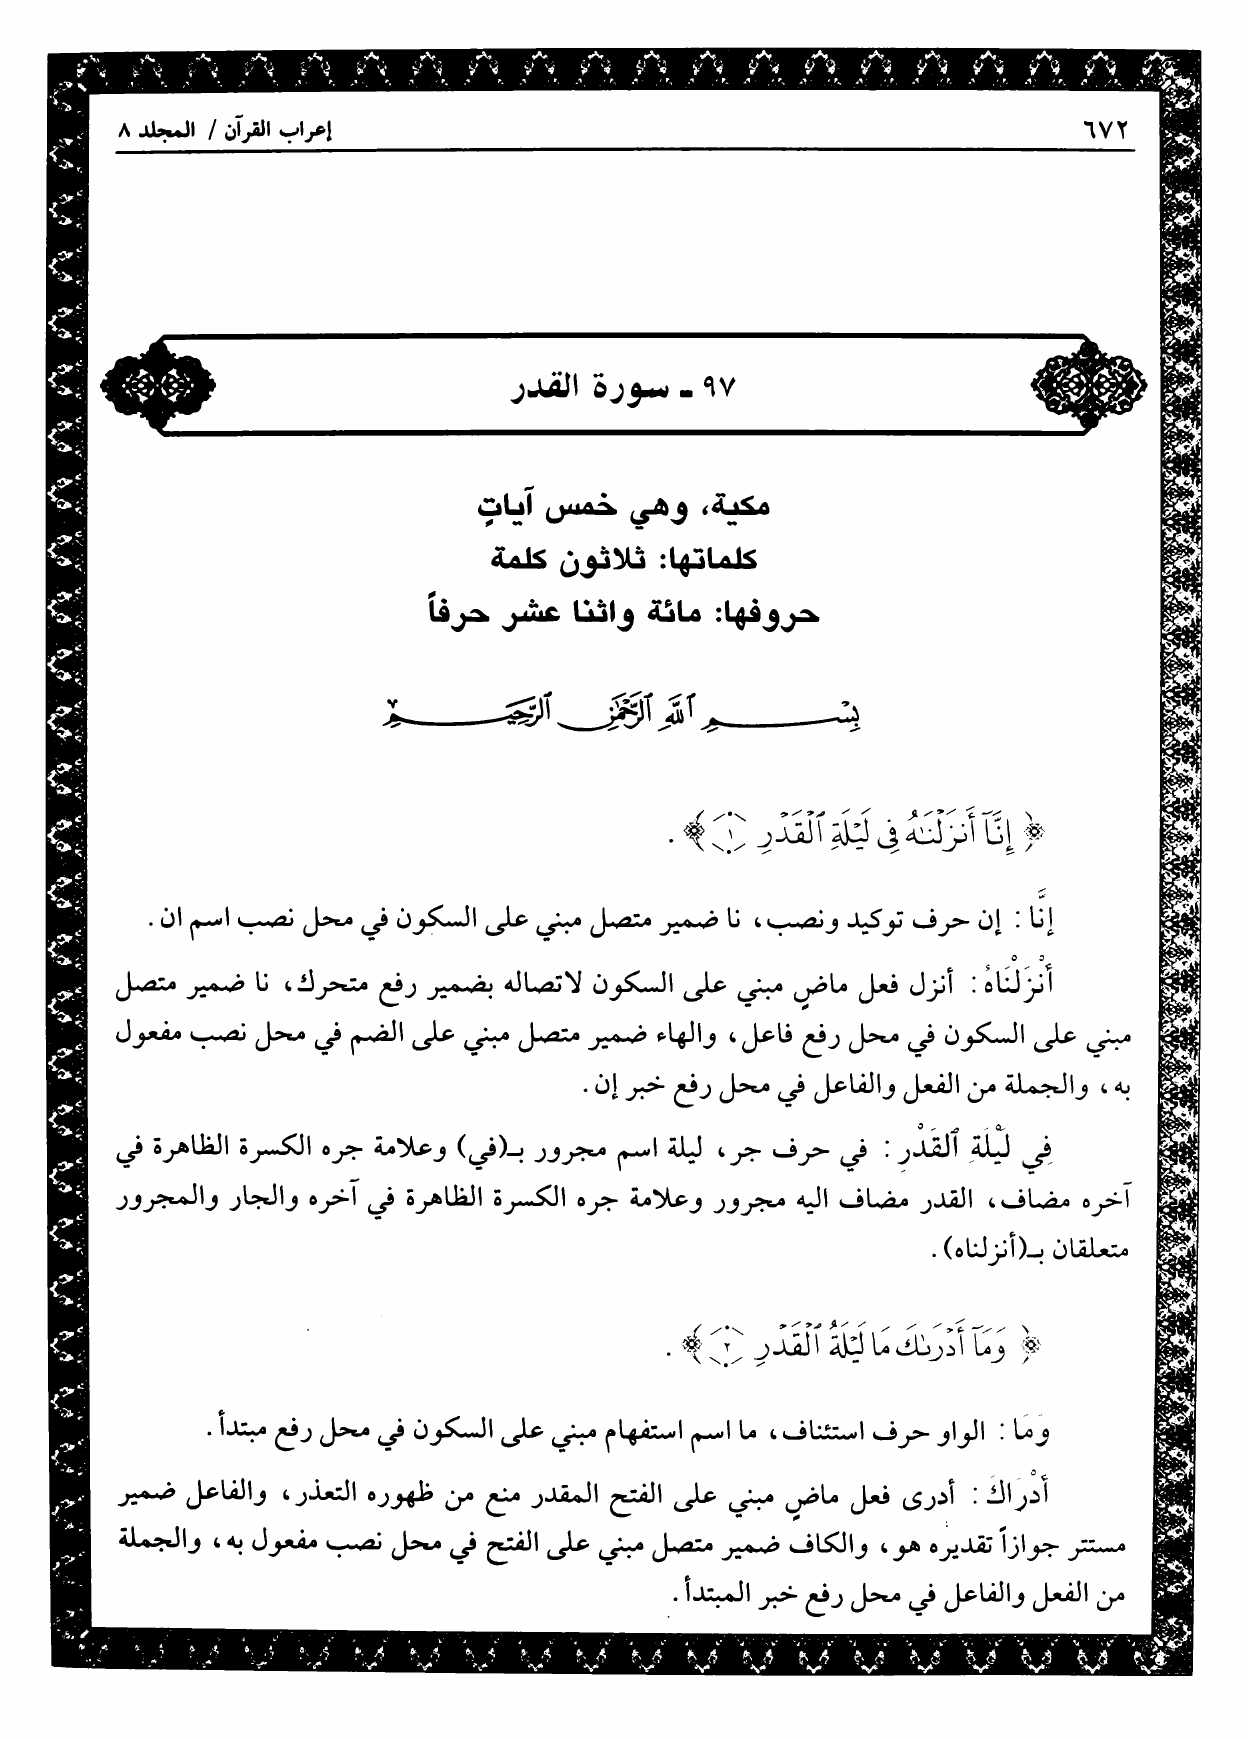 ٦٧٢ إعراب القرآن / المجلد ٨
٩٧ - سورة القدر
مكية، وهي خمس آياتٍ
كلماتها: ثلاثون كلمة
حروفها: مائة واثنا عشر حرفاً
بِسْمِ ٱللَّهِ ٱلرَّحْمَٰنِ ٱلرَّحِيمِ
﴿ إِنَّآ أَنزَلْنَٰهُ فِى لَيْلَةِ ٱلْقَدْرِ ١ ﴾ .
إنَّا : إن حرف توكيد ونصب، نا ضمير متصل مبني على السكون في محل نصب اسم ان .
أَنْزَلْنَاهُ : أنزل فعل ماضٍ مبني على السكون لاتصاله بضمير رفع متحرك، نا ضمير متصل
مبني على السكون في محل رفع فاعل، والهاء ضمير متصل مبني على الضم في محل نصب مفعول
به، والجملة من الفعل والفاعل في محل رفع خبر إن .
فِي لَيْلَةِ ٱلقَدْرِ : في حرف جر، ليلة اسم مجرور بـ(في) وعلامة جره الكسرة الظاهرة في
آخره مضاف، القدر مضاف اليه مجرور وعلامة جره الكسرة الظاهرة في آخره والجار والمجرور
متعلقان بـ(أنزلناه) .
﴿ وَمَآ أَدْرَىٰكَ مَا لَيْلَةُ ٱلْقَدْرِ ٢ ﴾ .
وَمَا : الواو حرف استئناف، ما اسم استفهام مبني على السكون في محل رفع مبتدأ .
أَدْرَاكَ : أدرى فعل ماضٍ مبني على الفتح المقدر منع من ظهوره التعذر، والفاعل ضمير
مستتر جوازاً تقديره هو، والكاف ضمير متصل مبني على الفتح في محل نصب مفعول به، والجملة
من الفعل والفاعل في محل رفع خبر المبتدأ .